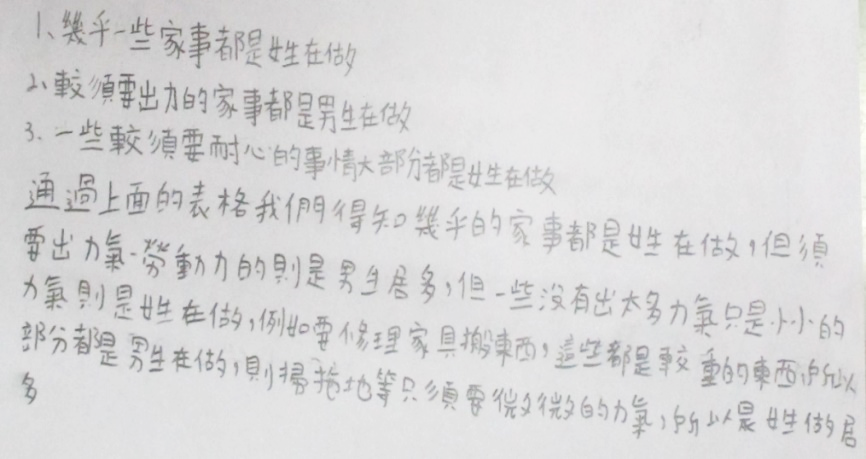 1、幾乎一些家事都是女生在做
2、較須要出力的家事都是男生在做
3、一些較須要耐心的事情大部分都是女生在做
通過上面的表格我們得知幾乎的家事都是女生在做,但須
要出力氣、勞動力的則是男生居多,但一些沒有出太多力氣只是小小的
力氣則是女生在做,例如要修理家具搬東西,這些都是較重的東西,所以
部分都是男生在做,則掃拖地等只須要微微的力氣,所以是女生做居
多